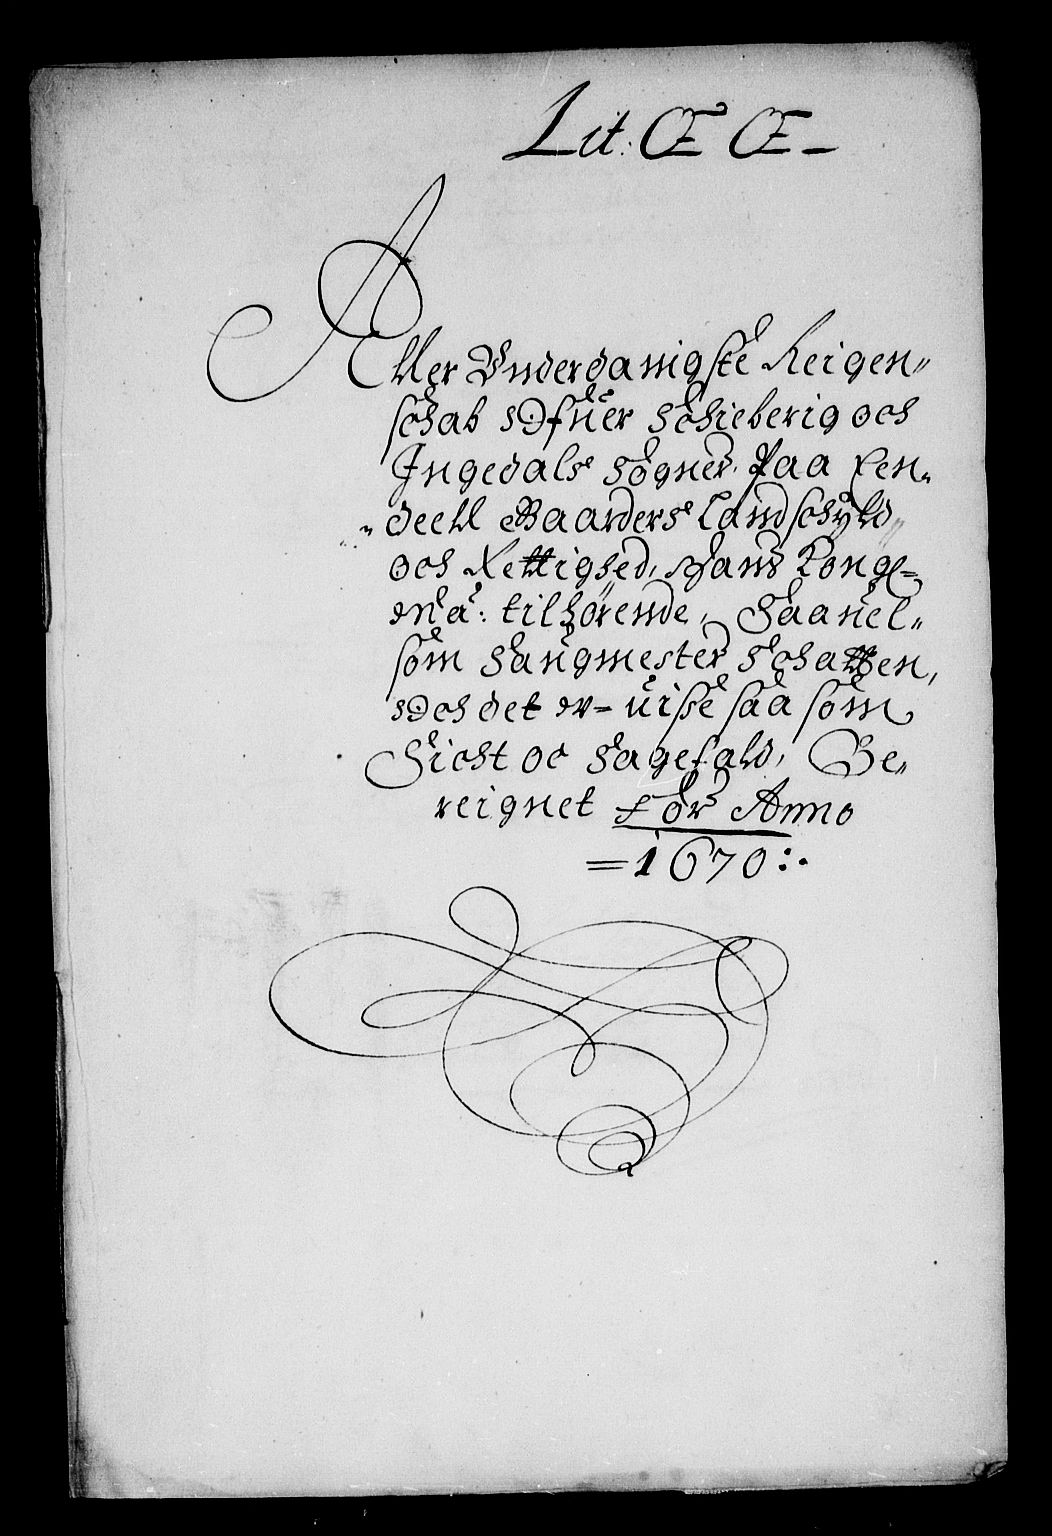 Lit. Œ Œ
Aller Underdanigste Reigen„
schab Ofuer Schieberig och
Ingedals Sogner. Paa een„
„deell Gaarders Landschyld„
och Rettighed, Hans Konge=
Ma: tilhörende, Saauel„
som Saugmester Schatten,
Och det u-uisse saa som
Sicht oc Sagefald, Be„
reignet for Anno
=1670:.